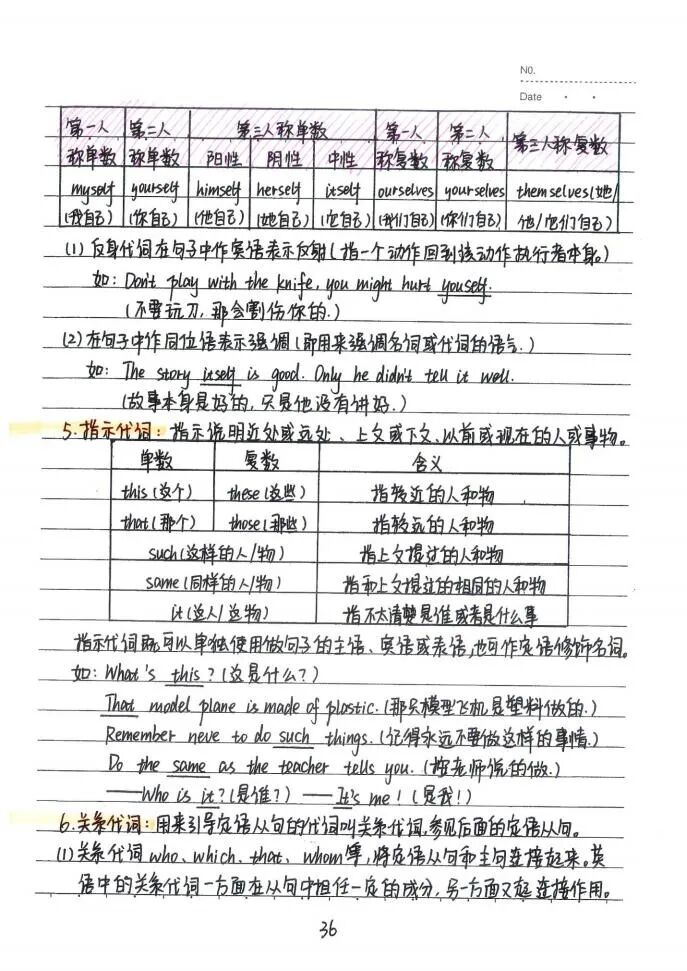 No.
Date
第一人 第二人 第三人称单数 第一人 第二人 第三人称复数
称单数 称单数 阳性 阴性 中性 称复数 称复数
myself yourself himself herself itself ourselves yourselves themselves(她/
(我自己) (你自己) (他自己) (她自己) (它自己) (我们自己) (你们自己) 他/它们自己)
(1) 反身代词在句子中作宾语表示反射(指一个动作回到该动作执行者本身。)
如: Don't play with the knife, you might hurt youself.
(不要玩刀,那会割伤你的.)
(2) 在句子中作同位语表示强调(即用来强调名词或代词的语气.)
如: The story itself is good. Only he didn't tell it well.
(故事本身是好的,只是他没有讲好.)
5.指示代词: 指示说明近处或远处、上文或下文、以前或现在的人或事物。
单数 复数 含义
this(这个) these(这些) 指较近的人和物
that(那个) those(那些) 指较远的人和物
such(这样的人/物) 指上文提过的人和物
same(同样的人/物) 指和上文提过的相同的人和物
it(这人/这物) 指不太清楚是谁或者是什么事
指示代词既可以单独使用做句子的主语、宾语或表语,也可作定语修饰名词。
如: What's this?(这是什么?)
That model plane is made of plastic.(那只模型飞机是塑料做的.)
Remember neve to do such things.(记得永远不要做这样的事情.)
Do the same as the teacher tells you.(按老师说的做.)
——Who is it?(是谁?) ——It's me!(是我!)
6.关系代词: 用来引导定语从句的代词叫关系代词,参见后面的定语从句。
(1)关系代词who、which、that、whom等,将定语从句和主句连接起来。英
语中的关系代词一方面在从句中担任一定的成分,另一方面又起连接作用。
36